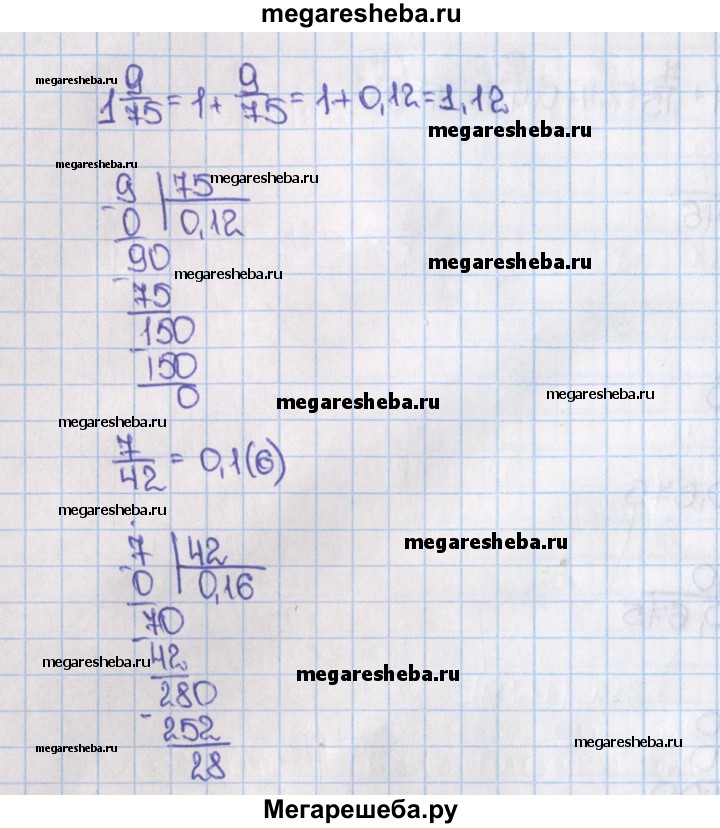 megaresheba.ru
megaresheba.ru
1 9/75 = 1 + 9/75 = 1 + 0,12 = 1,12
megaresheba.ru
megaresheba.ru
9 | 75 megaresheba.ru
- 0 | 0,12
90 megaresheba.ru
megaresheba.ru
- 75
150
- 150
0
megaresheba.ru
megaresheba.ru
megaresheba.ru
7/42 = 0,1(6)
megaresheba.ru
7 | 42 megaresheba.ru
- 0 | 0,16
70
- 42
megaresheba.ru
megaresheba.ru
280
- 252
megaresheba.ru
megaresheba.ru
28
Мегарешеба.ру